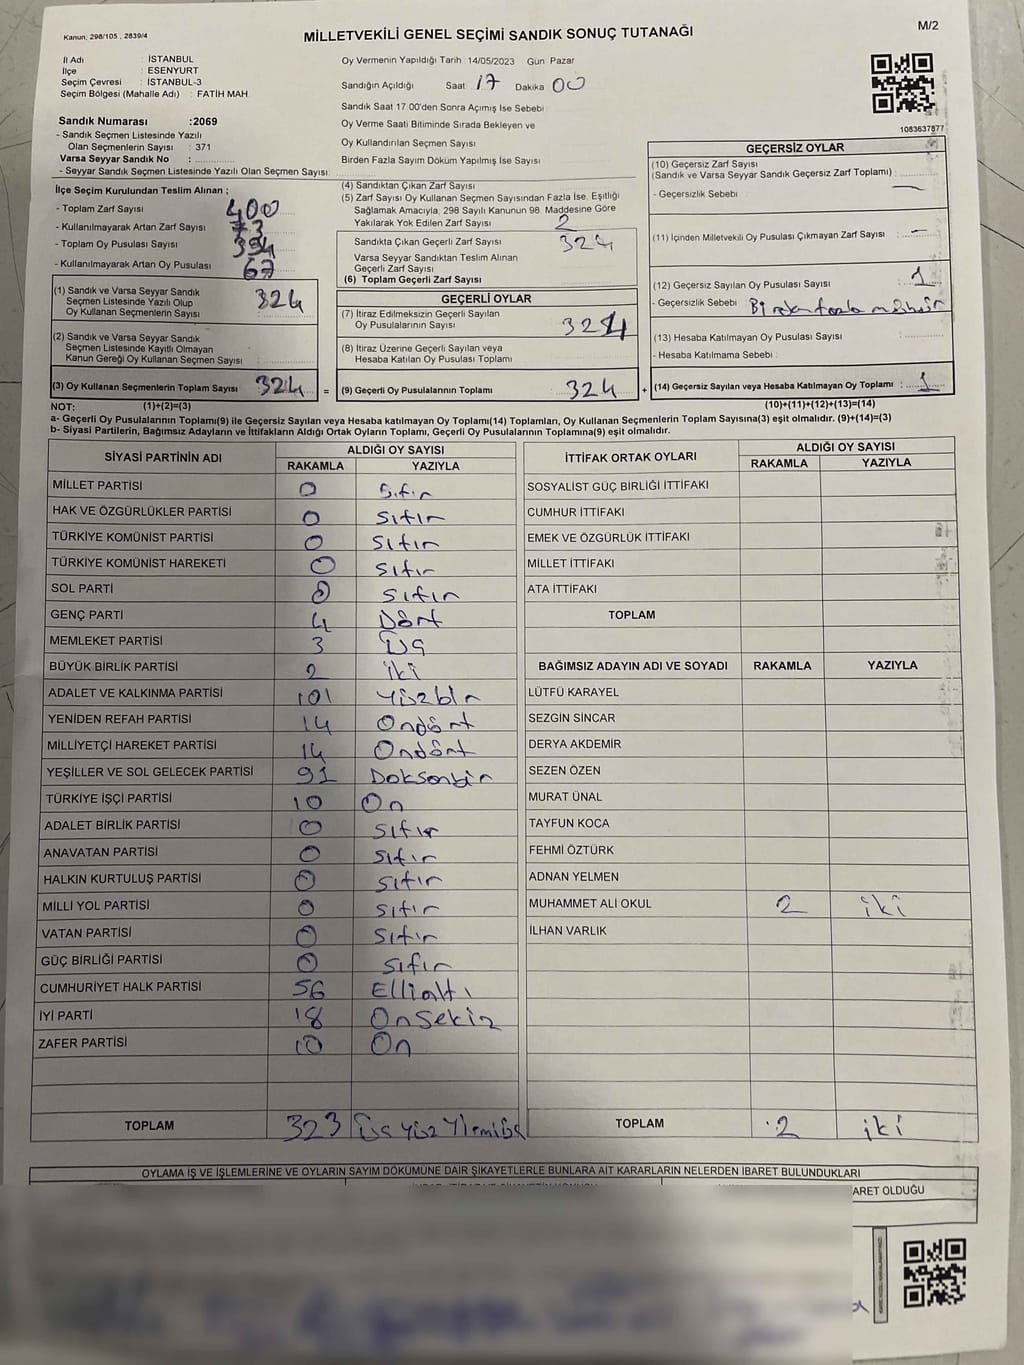 Kanun; 298/105 , 2839/4
MİLLETVEKİLİ GENEL SEÇİMİ SANDIK SONUÇ TUTANAĞI
M/2
İl Adı : İSTANBUL
İlçe : ESENYURT
Seçim Çevresi : İSTANBUL-3
Seçim Bölgesi (Mahalle Adı) : FATİH MAH.
Oy Vermenin Yapıldığı Tarih 14/05/2023 Gün: Pazar
Sandığın Açıldığı Saat 17 Dakika 00
Sandık Saat 17:00'den Sonra Açımış İse Sebebi
Oy Verme Saati Bitiminde Sırada Bekleyen ve
Oy Kullandırılan Seçmen Sayısı
Birden Fazla Sayım Döküm Yapılmış İse Sayısı
Sandık Numarası :2069
- Sandık Seçmen Listesinde Yazılı
Olan Seçmenlerin Sayısı : 371
Varsa Seyyar Sandık No :
- Seyyar Sandık Seçmen Listesinde Yazılı Olan Seçmen Sayısı:
1083637877
İlçe Seçim Kurulundan Teslim Alınan ;
- Toplam Zarf Sayısı 400
- Kullanılmayarak Artan Zarf Sayısı 73
- Toplam Oy Pusulası Sayısı
- Kullanılmayarak Artan Oy Pusulası 67
(1) Sandık ve Varsa Seyyar Sandık
Seçmen Listesinde Yazılı Olup
Oy Kullanan Seçmenlerin Sayısı 324
(2) Sandık ve Varsa Seyyar Sandık
Seçmen Listesinde Kayıtlı Olmayan
Kanun Gereği Oy Kullanan Seçmen Sayısı
(3) Oy Kullanan Seçmenlerin Toplam Sayısı 324 =
(4) Sandıktan Çıkan Zarf Sayısı
(5) Zarf Sayısı Oy Kullanan Seçmen Sayısından Fazla İse, Eşitliği
Sağlamak Amacıyla, 298 Sayılı Kanunun 98. Maddesine Göre
Yakılarak Yok Edilen Zarf Sayısı 2
Sandıkta Çıkan Geçerli Zarf Sayısı 324
Varsa Seyyar Sandıktan Teslim Alınan
Geçerli Zarf Sayısı
(6) Toplam Geçerli Zarf Sayısı
GEÇERLİ OYLAR
(7) İtiraz Edilmeksizin Geçerli Sayılan
Oy Pusulalarının Sayısı
(8) İtiraz Üzerine Geçerli Sayılan veya
Hesaba Katılan Oy Pusulası Toplamı
(9) Geçerli Oy Pusulalarının Toplamı 324 +
GEÇERSİZ OYLAR
(10) Geçersiz Zarf Sayısı
(Sandık ve Varsa Seyyar Sandık Geçersiz Zarf Toplamı) :
- Geçersizlik Sebebi : —
(11) İçinden Milletvekili Oy Pusulası Çıkmayan Zarf Sayısı : —
(12) Geçersiz Sayılan Oy Pusulası Sayısı : 1
- Geçersizlik Sebebi : Birden fazla mühür
(13) Hesaba Katılmayan Oy Pusulası Sayısı :
- Hesaba Katılmama Sebebi :
(14) Geçersiz Sayılan veya Hesaba Katılmayan Oy Toplamı : 1
NOT: (1)+(2)=(3)
(10)+(11)+(12)+(13)=(14)
a- Geçerli Oy Pusulalarının Toplamı(9) ile Geçersiz Sayılan veya Hesaba katılmayan Oy Toplamı(14) Toplamları, Oy Kullanan Seçmenlerin Toplam Sayısına(3) eşit olmalıdır. (9)+(14)=(3)
b- Siyasi Partilerin, Bağımsız Adayların ve İttifakların Aldığı Ortak Oyların Toplamı, Geçerli Oy Pusulalarının Toplamına(9) eşit olmalıdır.
SİYASİ PARTİNİN ADI ALDIĞI OY SAYISI
RAKAMLA YAZIYLA
MİLLET PARTİSİ 0 Sıfır
HAK VE ÖZGÜRLÜKLER PARTİSİ 0 Sıfır
TÜRKİYE KOMÜNİST PARTİSİ 0 Sıfır
TÜRKİYE KOMÜNİST HAREKETİ 0 Sıfır
SOL PARTİ 0 Sıfır
GENÇ PARTİ 4 Dört
MEMLEKET PARTİSİ 3 Üç
BÜYÜK BİRLİK PARTİSİ 2 iki
ADALET VE KALKINMA PARTİSİ 101 Yüzbir
YENİDEN REFAH PARTİSİ 14 Ondört
MİLLİYETÇİ HAREKET PARTİSİ 14 Ondört
YEŞİLLER VE SOL GELECEK PARTİSİ 91 Doksanbir
TÜRKİYE İŞÇİ PARTİSİ 10 On
ADALET BİRLİK PARTİSİ 0 Sıfır
ANAVATAN PARTİSİ 0 Sıfır
HALKIN KURTULUŞ PARTİSİ 0 Sıfır
MİLLİ YOL PARTİSİ 0 Sıfır
VATAN PARTİSİ 0 Sıfır
GÜÇ BİRLİĞİ PARTİSİ 0 Sıfır
CUMHURİYET HALK PARTİSİ 56 Ellialtı
İYİ PARTİ 18 Onsekiz
ZAFER PARTİSİ 10 On
TOPLAM 323
İTTİFAK ORTAK OYLARI ALDIĞI OY SAYISI
RAKAMLA YAZIYLA
SOSYALİST GÜÇ BİRLİĞİ İTTİFAKI
CUMHUR İTTİFAKI
EMEK VE ÖZGÜRLÜK İTTİFAKI
MİLLET İTTİFAKI
ATA İTTİFAKI
TOPLAM
BAĞIMSIZ ADAYIN ADI VE SOYADI RAKAMLA YAZIYLA
LÜTFÜ KARAYEL
SEZGİN SİNCAR
DERYA AKDEMİR
SEZEN ÖZEN
MURAT ÜNAL
TAYFUN KOCA
FEHMİ ÖZTÜRK
ADNAN YELMEN
MUHAMMET ALİ OKUL 2 iki
İLHAN VARLIK
TOPLAM 2 iki
OYLAMA İŞ VE İŞLEMLERİNE VE OYLARIN SAYIM DÖKÜMÜNE DAİR ŞİKAYETLERLE BUNLARA AİT KARARLARIN NELERDEN İBARET BULUNDUKLARI
ARET OLDUĞU